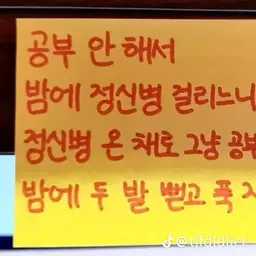 공부 안 해서
밤에 정신병 걸리느니
정신병 온 채로 그냥 공부
밤에 두 발 뻗고 푹 자